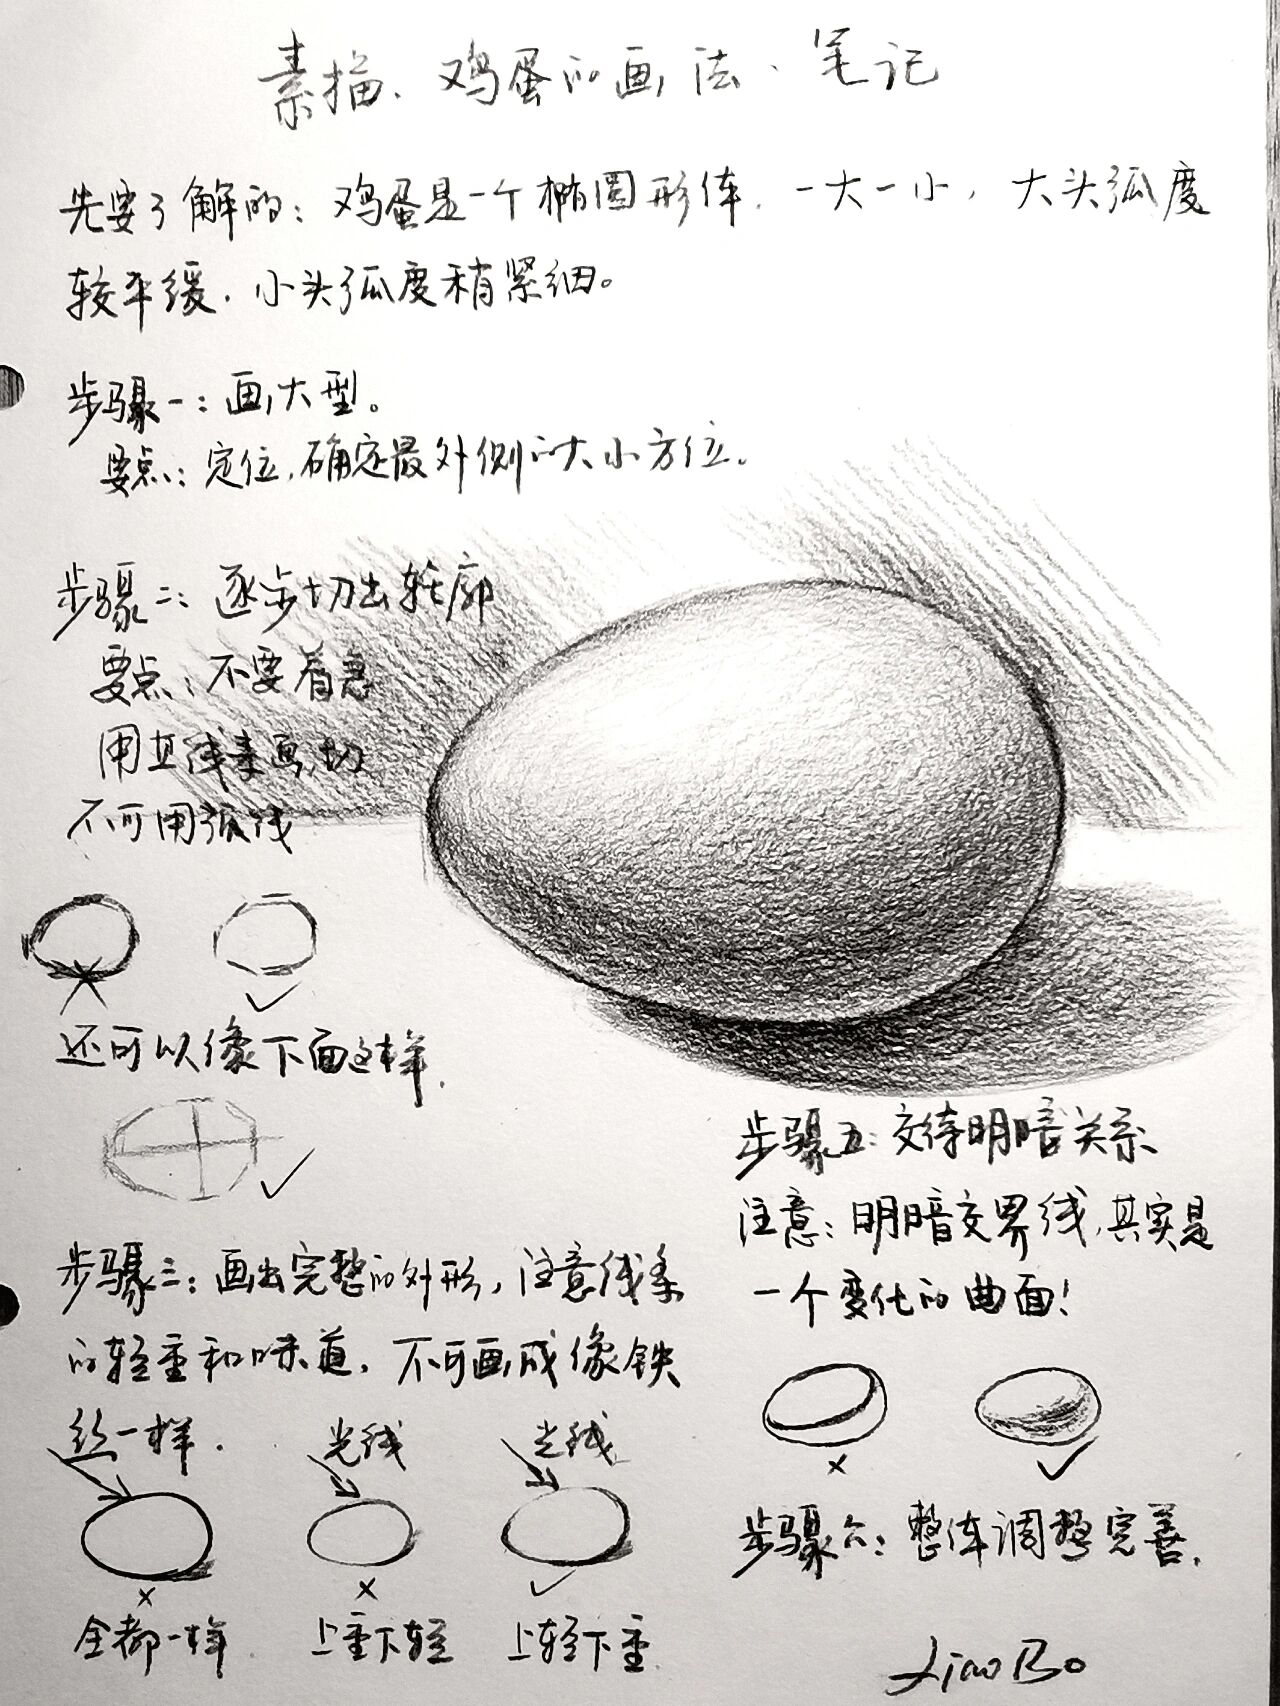 素描、鸡蛋的画法、笔记
先要了解的：鸡蛋是一个椭圆形体，一大一小，大头弧度
较平缓，小头弧度稍紧细。
步骤一：画大型。
要点：定位，确定最外侧的大小方位。
步骤二：逐步切出轮廓
要点：不要着急
用直线来画，切
不可用弧线
还可以像下面这样，
步骤三：画出完整的外形，注意线条
的轻重和味道，不可画成像铁
丝一样．
光线
光线
全都一样
上重下轻
上轻下重
步骤五：交待明暗关系
注意：明暗交界线，其实是
一个变化的曲面！
步骤六：整体调整完善．
XiaoBo